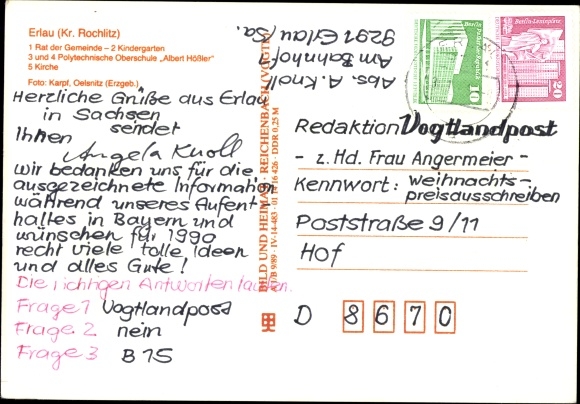 Erlau (Kr. Rochlitz)
1 Rat der Gemeinde – 2 Kindergarten
3 und 4 Polytechnische Oberschule „Albert Hößler"
5 Kirche
Foto: Karpf, Oelsnitz (Erzgeb.)
Herzliche Grüße aus Erlau
in Sachsen
sendet
Ihnen
Angela Knoll
wir bedanken uns für die
ausgezeichnete Information
während unseres Aufent-
haltes in Bayern und
wünschen für 1990
recht viele tolle Ideen
und alles Gute!
Die richtigen Antworten lauten:
Frage 1 Vogtlandpost
Frage 2 nein
Frage 3 B 15
Abs. A. Knoll
Am Bahnhof
9291 Erlau/Sa.
BILD UND HEIMAT · REICHENBACH (VOGTL)
DDR 0,25 M
10
Berlin-Leninplatz
20
Redaktion Vogtlandpost
- z. Hd. Frau Angermeier -
Kennwort: Weihnachts-
preisausschreiben
Poststraße 9/11
Hof
D 8670